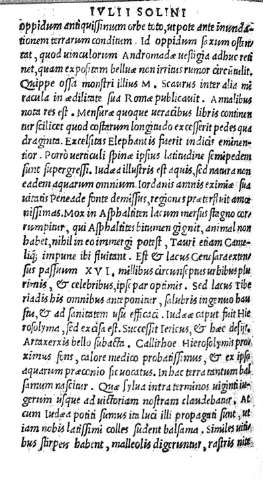 IVLII SOLINI
oppidum antiquissimum orbe toto, utpote ante inunda-
tionem terrarum conditum. Id oppidum saxum osten-
tat, quod uinculorum Andromadæ uestigia adhuc reti
net, quam expositam belluæ non irritus rumor circūtulit.
Quippe ossa monstri illius M. Scaurus inter alia mi
racula in ædilitate sua Romæ publicauit. Annalibus
nota res est. Mensuræ quoque ueracibus libris continen
tur scilicet quod costarum longitudo excesserit pedes qua
draginta. Excelsitas Elephantis fuerit indicis eminen-
tior. Porrò uerticuli spinæ ipsius latitudine semipedem
sunt supergressi. Iudæa illustris est aquis, sed natura non
eadem aquarum omnium. Iordanis amnis eximiæ sua
uitatis Peneade fonte demissus, regiones præterfluit amœ
nissimas. Mox in Asphaltiten lacum mersus stagno cor
rumpitur, qui Asphaltites bitumen gignit, animal non
habet, nihil in eo immergi potest, Tauri etiam Came-
liq; impune ibi fluitant. Est & Lacus Genesara exten
sus passuum XVI. millibus circunseptus urbibus pluri
mis, & celebribus, ipse par optimis. Sed lacus Tibe
riadis his omnibus anteponitur, salubris ingenuo hau
stu, & ad sanitatem usu efficaci. Iudææ caput fuit Hie
rosolyma, sed excisa est. Successit Iericus, & hæc desijt,
Artaxerxis bello subacta. Callirhoe Hierosolymis pro
ximus fons, calore medico probatissimus, & ex ipso
aquarum præconio sic uocatus. In hac terra tantum bal
samum nascitur. Quæ sylua intra terminos uiginti iu-
gerum usque ad uictoriam nostram claudebatur. At
cum Iudæa potiti sumus ita luci illi propagati sunt, ut
iam nobis latissimi colles sudent balsama. Similes uiti-
bus stirpes habent, malleolis digeruntur, rastris nite